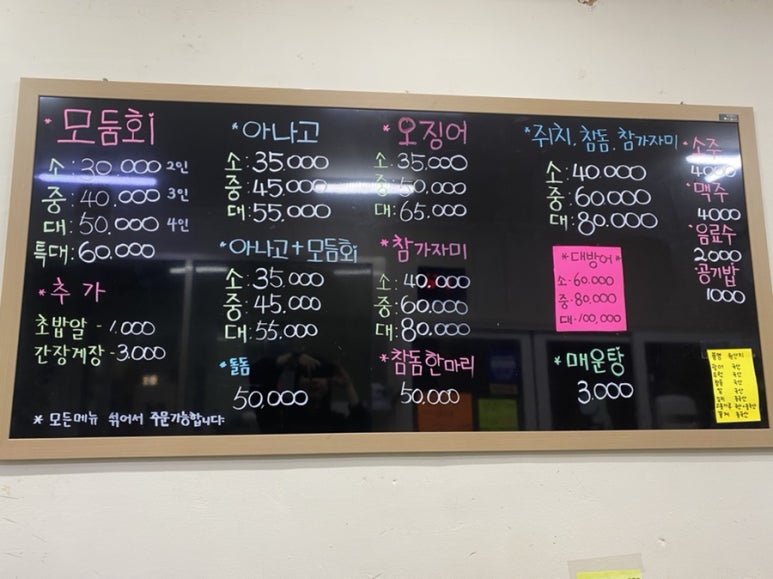 *모둠회
소: 30,000 2인
중: 40,000 3인
대: 50,000 4인
특대: 60,000
*추가
초밥알 - 1,000
간장게장 - 3,000
*모든메뉴 섞어서 주문가능합니다.
*아나고
소: 35,000
중: 45,000
대: 55,000
*아나고+모둠회
소: 35,000
중: 45,000
대: 55,000
*돌돔
50,000
*오징어
소: 35,000
중: 50,000
대: 65,000
*참가자미
소: 40,000
중: 60,000
대: 80,000
*참돔한마리
50,000
*쥐치, 참돔, 참가자미
소: 40,000
중: 60,000
대: 80,000
*대방어*
소 - 60,000
중 - 80,000
대 - 100,000
*매운탕
3,000
*소주
4000
*맥주
4000
*음료수
2,000
*공기밥
1000
품명 원산지